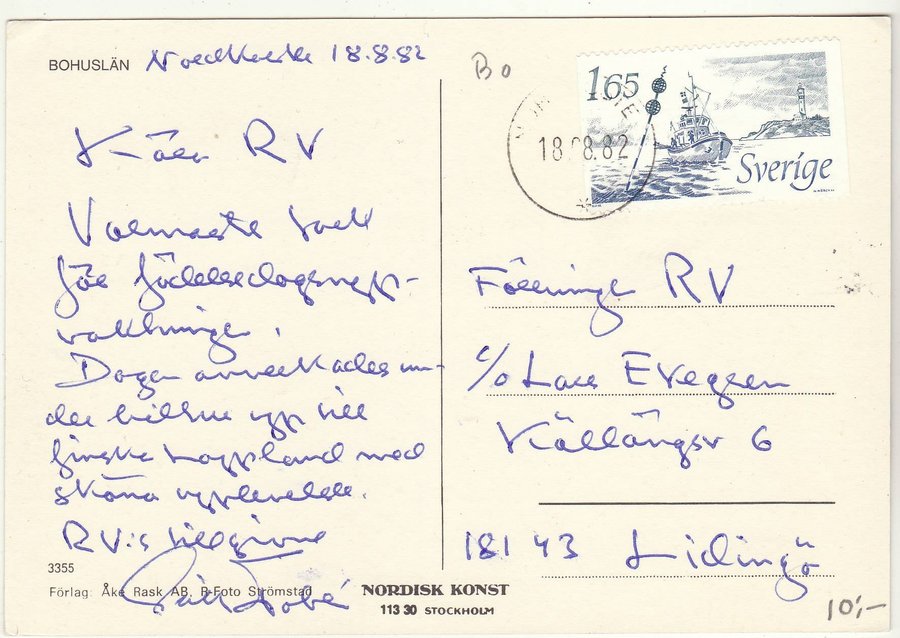 BOHUSLÄN
18.8.82
Kära RV
Varmaste tack
för födelsedagsupp-
vaktningen.
Dagen avverkades un-
der bilfärd upp till
finska Lappland med
sköna upplevelser.
RV:s tillgivne
3355
Förlag: Åke Rask AB, R-Foto Strömstad
NORDISK KONST
113 30 STOCKHOLM
Bo
165
Sverige
18.08.82
Förening RV
c/o Lars
Källängsv 6
181 43 Lidingö
10:-